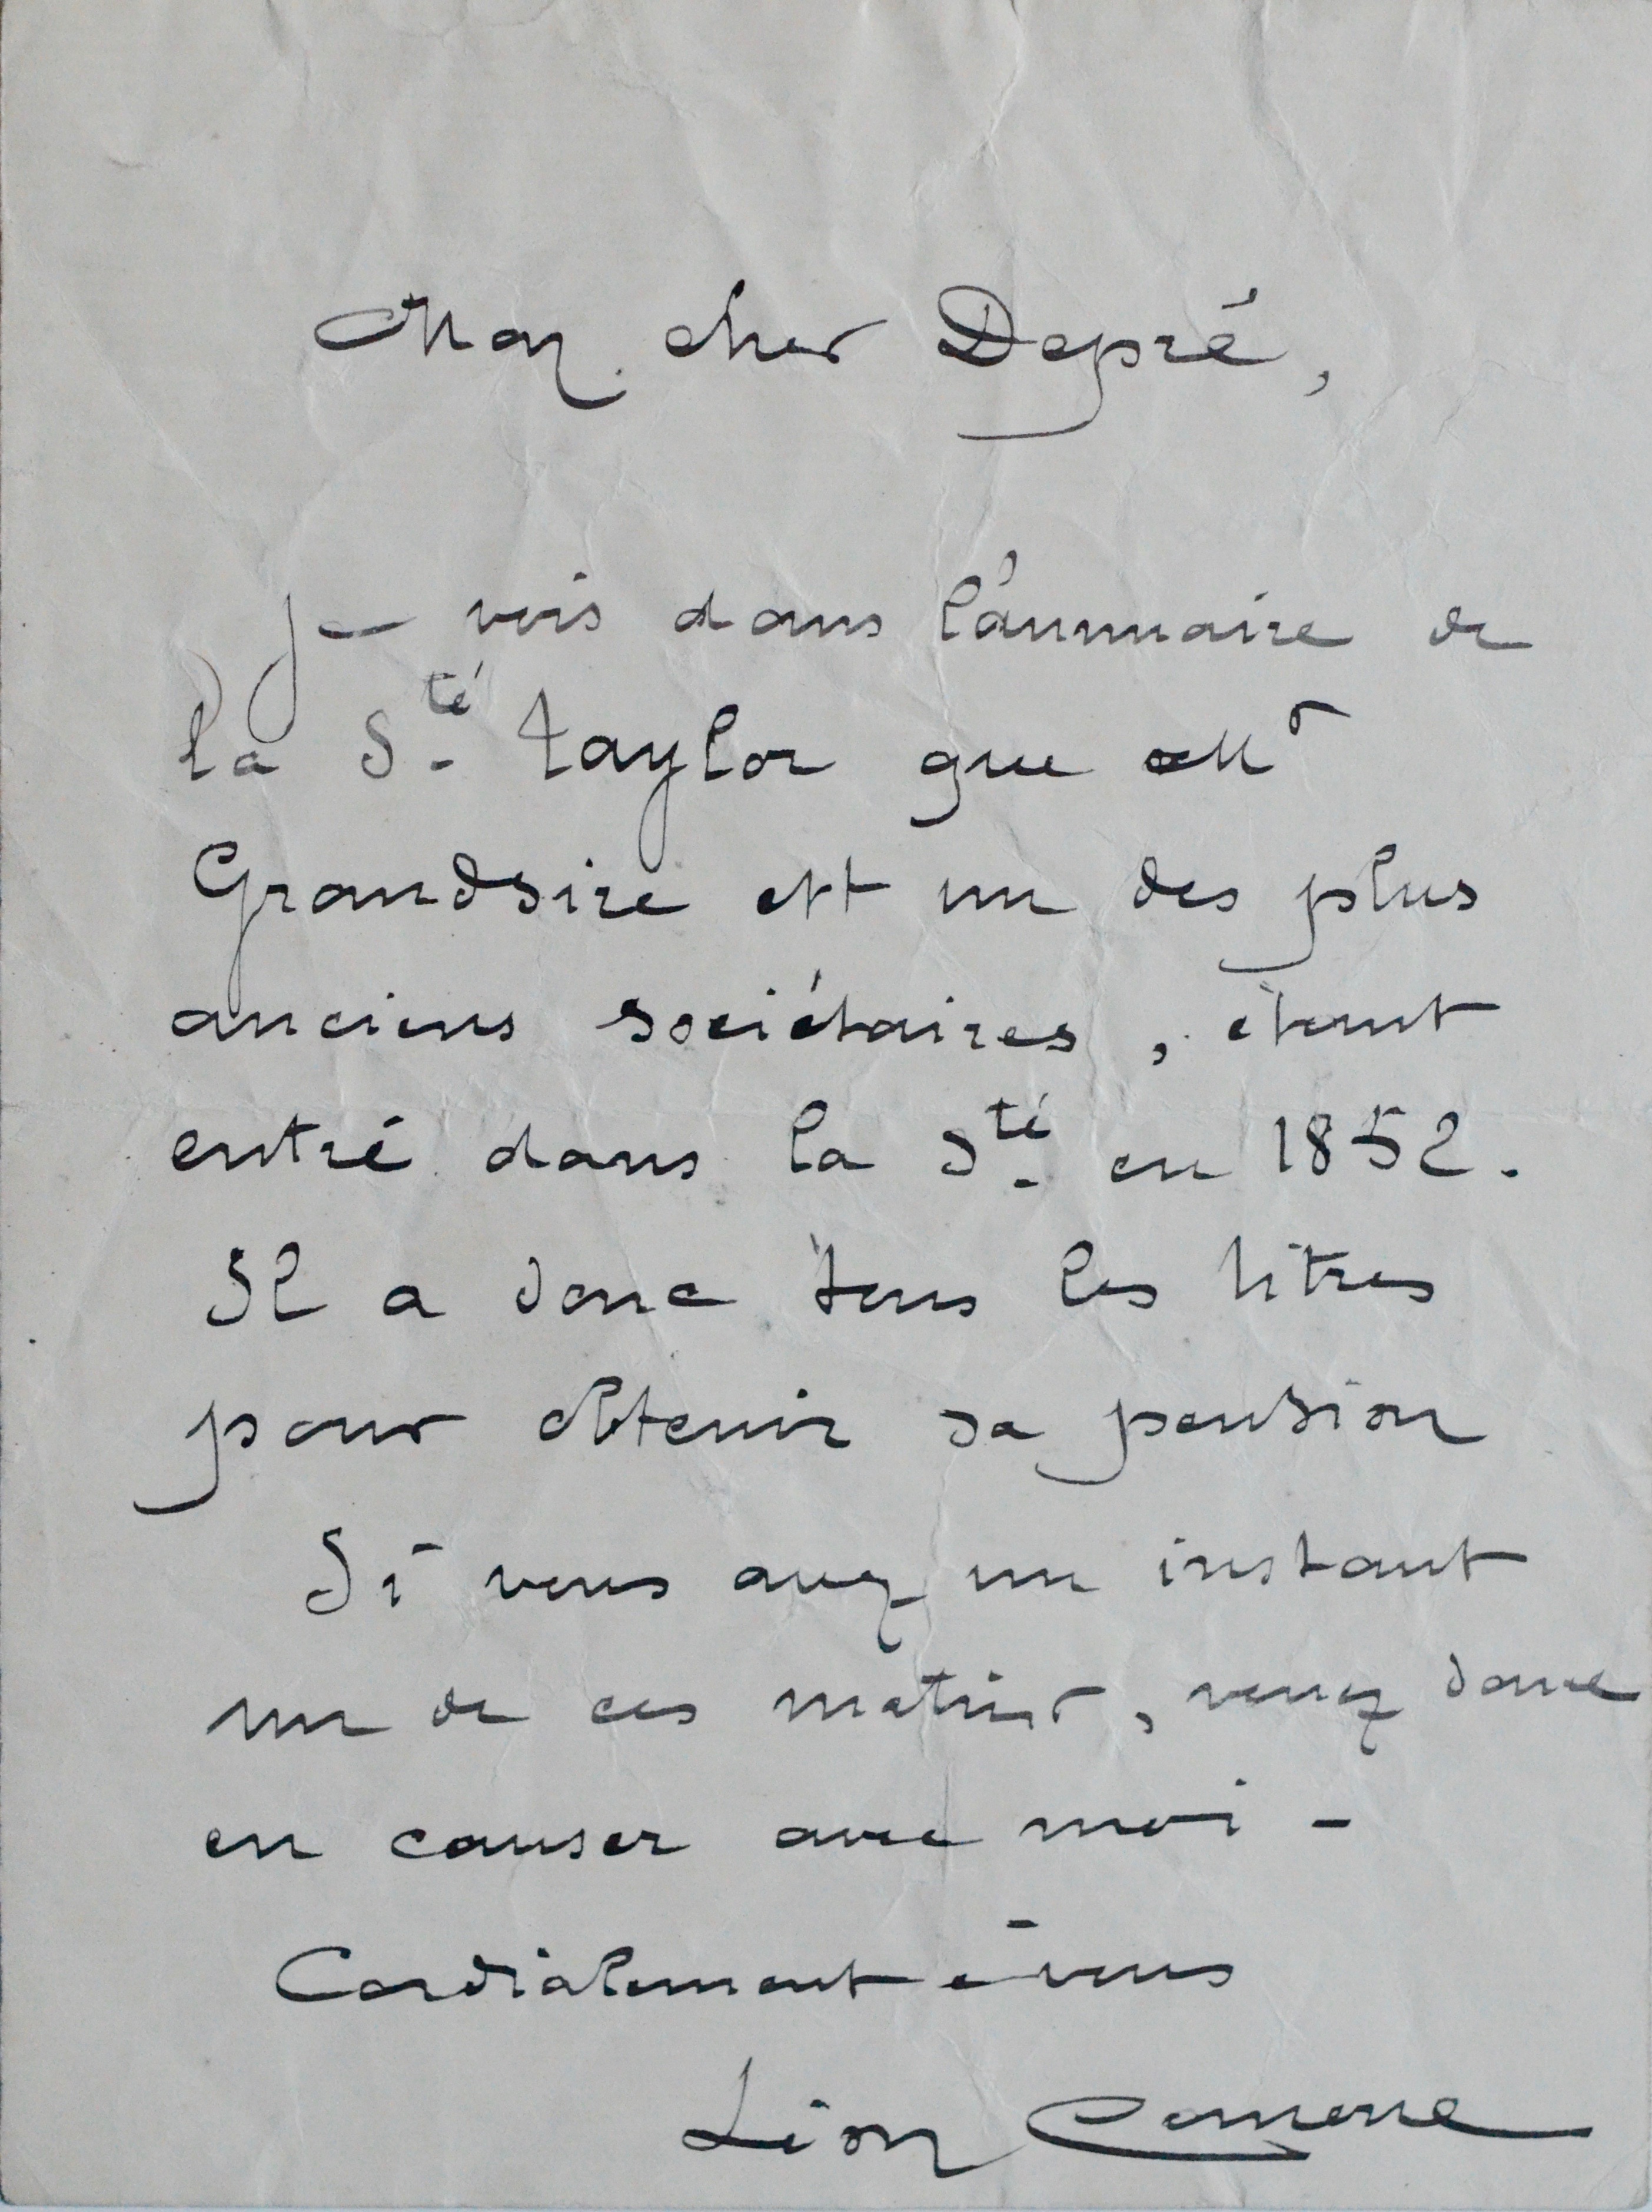 Mon cher Depré,
Je vois dans l'annuaire de
la Sté Taylor que Mr
Grandsire est un des plus
anciens sociétaires, étant
entré dans la Sté en 1852.
Il a donc tous les titres
pour obtenir sa pension
Si vous avez un instant
un de ces matins, venez donc
en causer avec moi -
Cordialement à vous
Léon